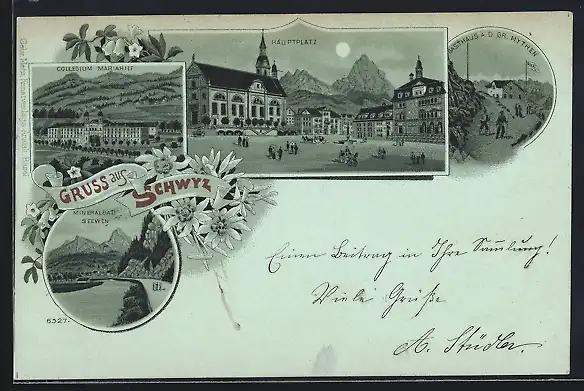 COLLEGIUM MARIAHILF
HAUPTPLATZ
GASTHAUS A. D. GR. MYTHEN
GRUSS aus SCHWYZ
MINERALBAD
SEEWEN
6327.
Einen Beitrag in Ihre Sammlung!
Viele Grüße
A. Stüdler.